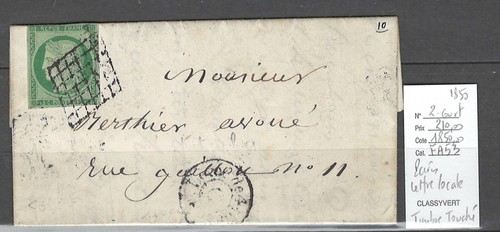 REPUB. FRANC.
10
Monsieur
Berthier avoué
rue No 11.
1850
N° 2 court
Prix 210,00
Cote 1850,00
Cat. FA53
Paris
lettre locale
CLASSYVERT
Timbre Touché